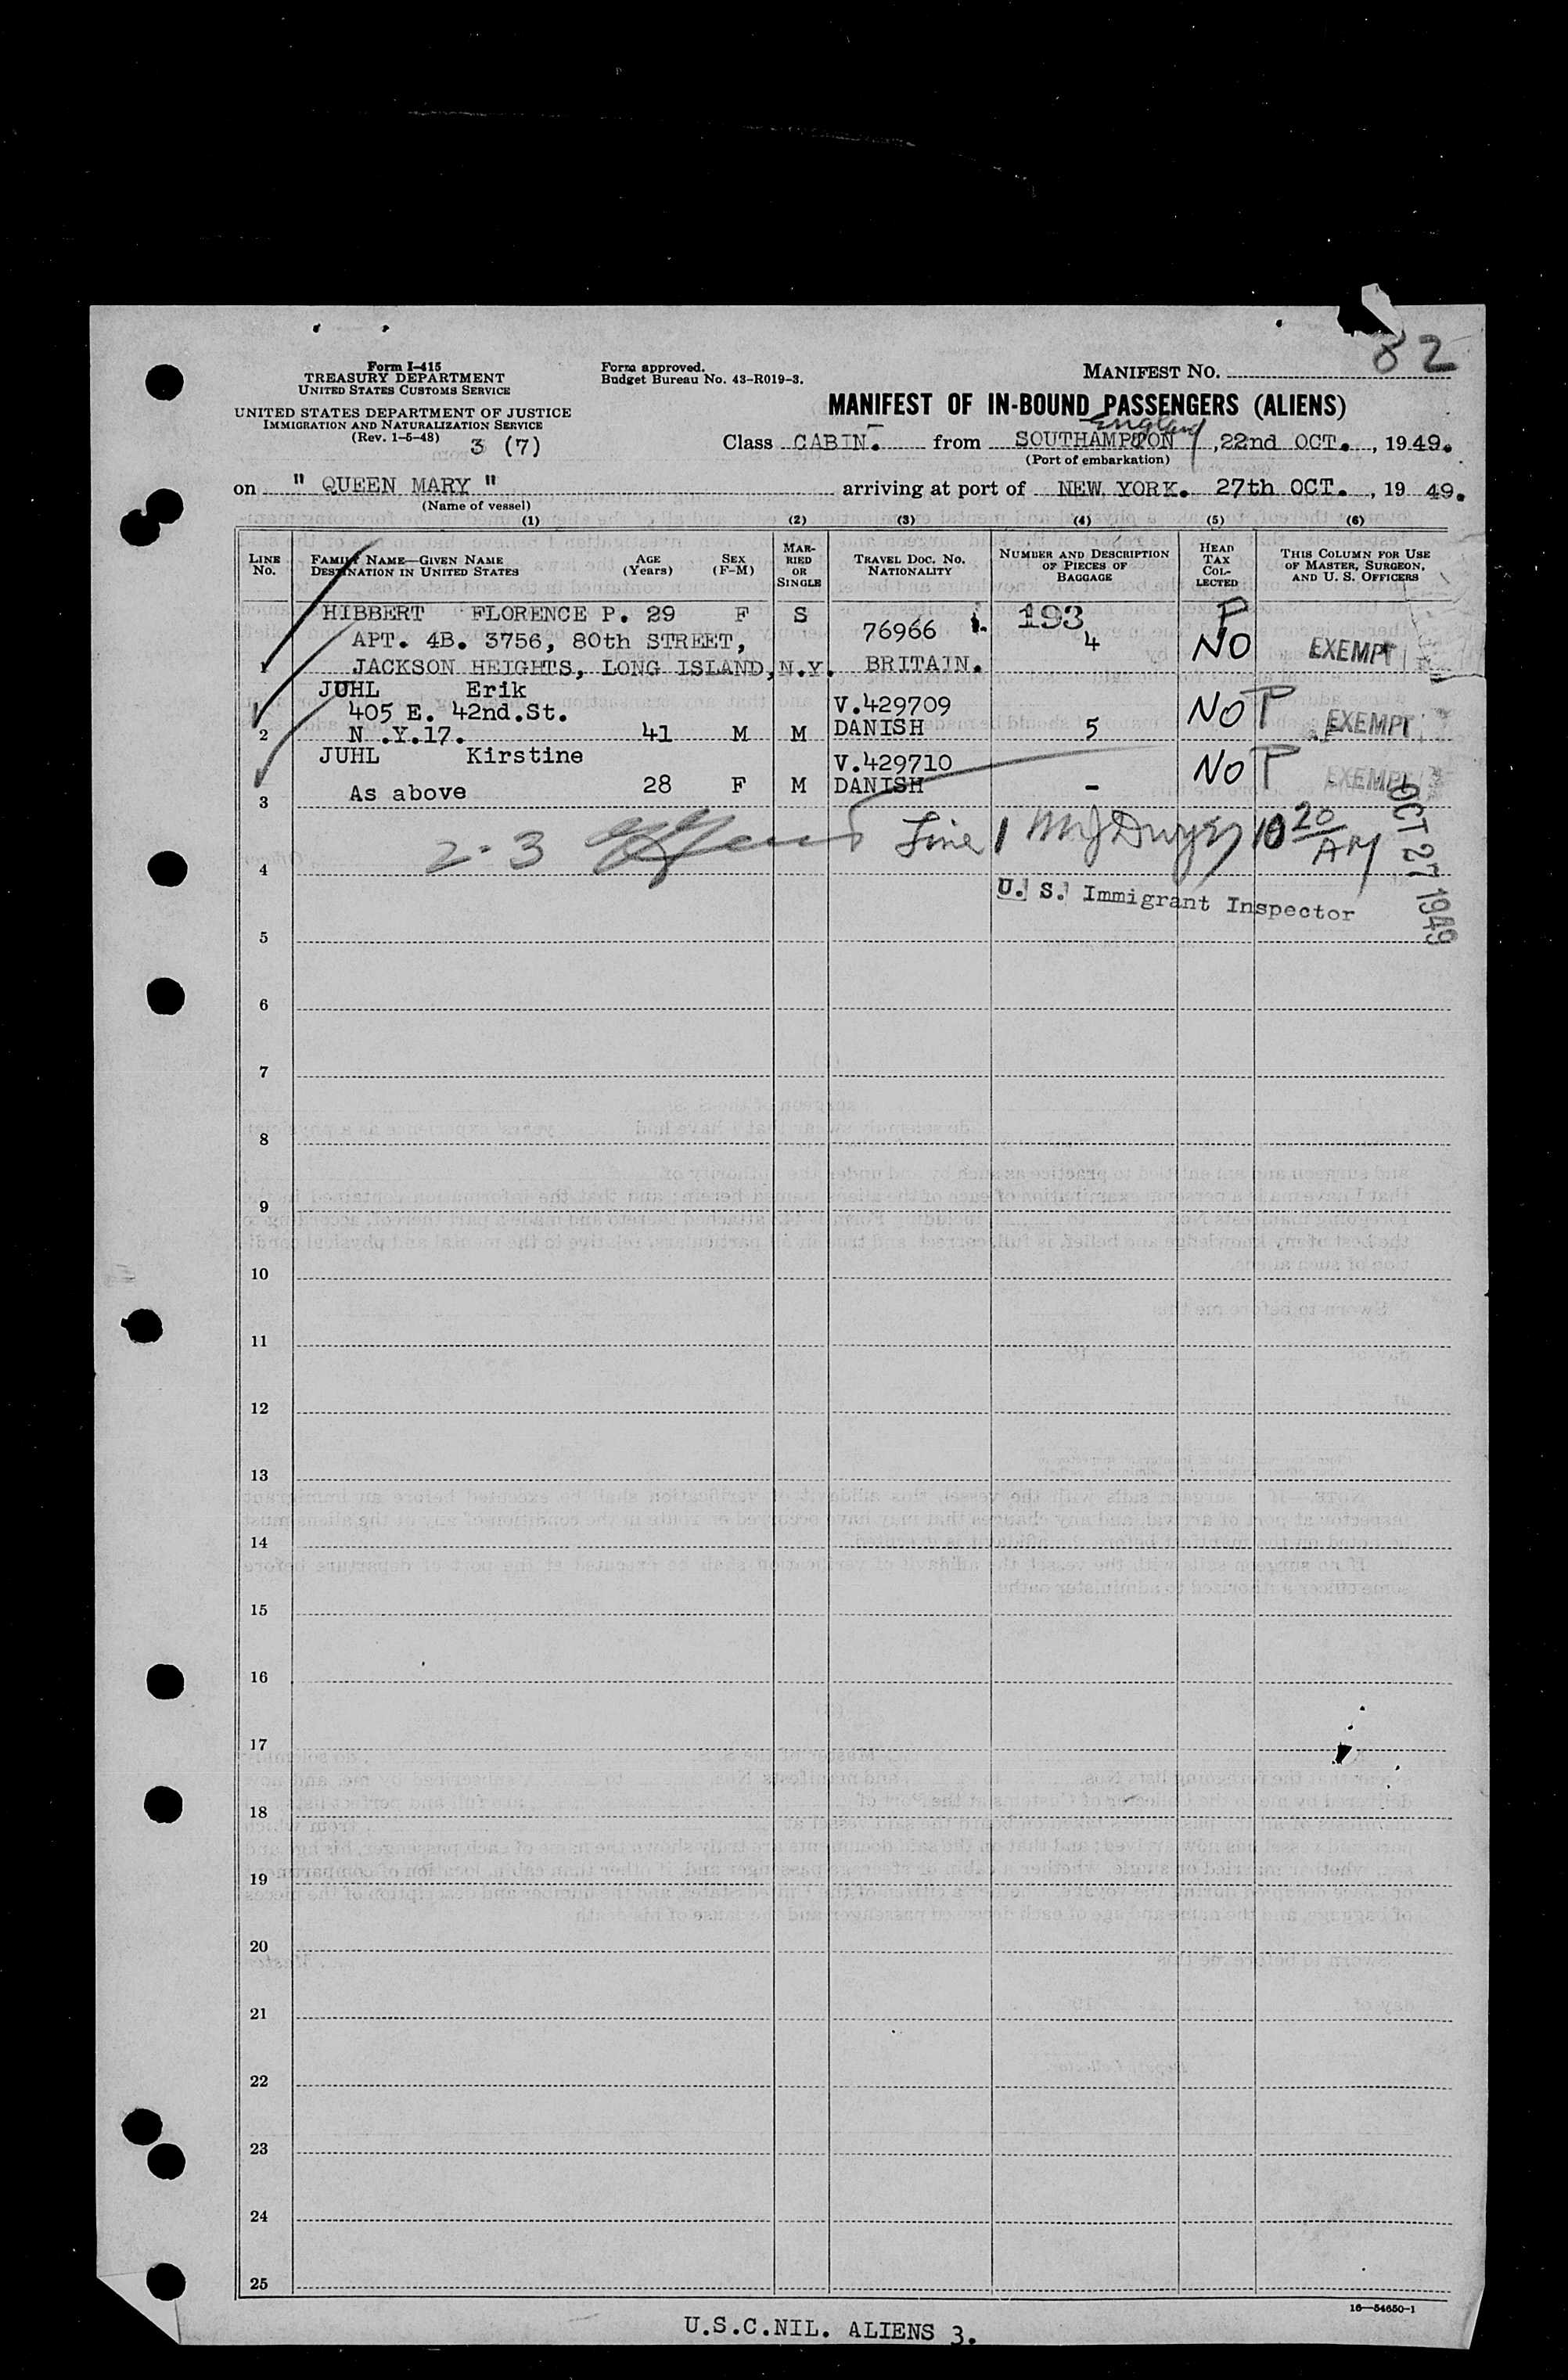 82
Form I-415
TREASURY DEPARTMENT
UNITED STATES CUSTOMS SERVICE
Form approved.
Budget Bureau No. 43-R019-3.
MANIFEST NO.
UNITED STATES DEPARTMENT OF JUSTICE
IMMIGRATION AND NATURALIZATION SERVICE
(Rev. 1-5-48)
3 (7)
MANIFEST OF IN-BOUND PASSENGERS (ALIENS)
England
Class CABIN. from SOUTHAMPTON, 22nd OCT., 1949.
(Port of embarkation)
on " QUEEN MARY " arriving at port of NEW YORK. 27th OCT., 19 49.
(Name of vessel)
(1) (2) (3) (4) (5) (6)
LINE No.
FAMILY NAME—GIVEN NAME
DESTINATION IN UNITED STATES
AGE (Years)
SEX (F-M)
MARRIED OR SINGLE
TRAVEL DOC. NO.
NATIONALITY
NUMBER AND DESCRIPTION OF PIECES OF BAGGAGE
HEAD TAX COLLECTED
THIS COLUMN FOR USE OF MASTER, SURGEON, AND U. S. OFFICERS
HIBBERT FLORENCE P. 29 F S 193 P
APT. 4B. 3756, 80th STREET, 76966 4 NO EXEMPT
1 JACKSON HEIGHTS, LONG ISLAND, N.Y. BRITAIN.
JUHL Erik
405 E. 42nd.St. V.429709 NO P EXEMPT
2 N .Y.17. 41 M M DANISH 5
JUHL Kirstine V.429710 NO P EXEMPT
3 As above 28 F M DANISH -
OCT 27 1949
4 2-3 Line 1 MJ Dwyer 10 20 AM
U. S. Immigrant Inspector
5
6
7
8
9
10
11
12
13
14
15
16
17
18
19
20
21
22
23
24
25
16—54650-1
U.S.C.NIL. ALIENS 3.